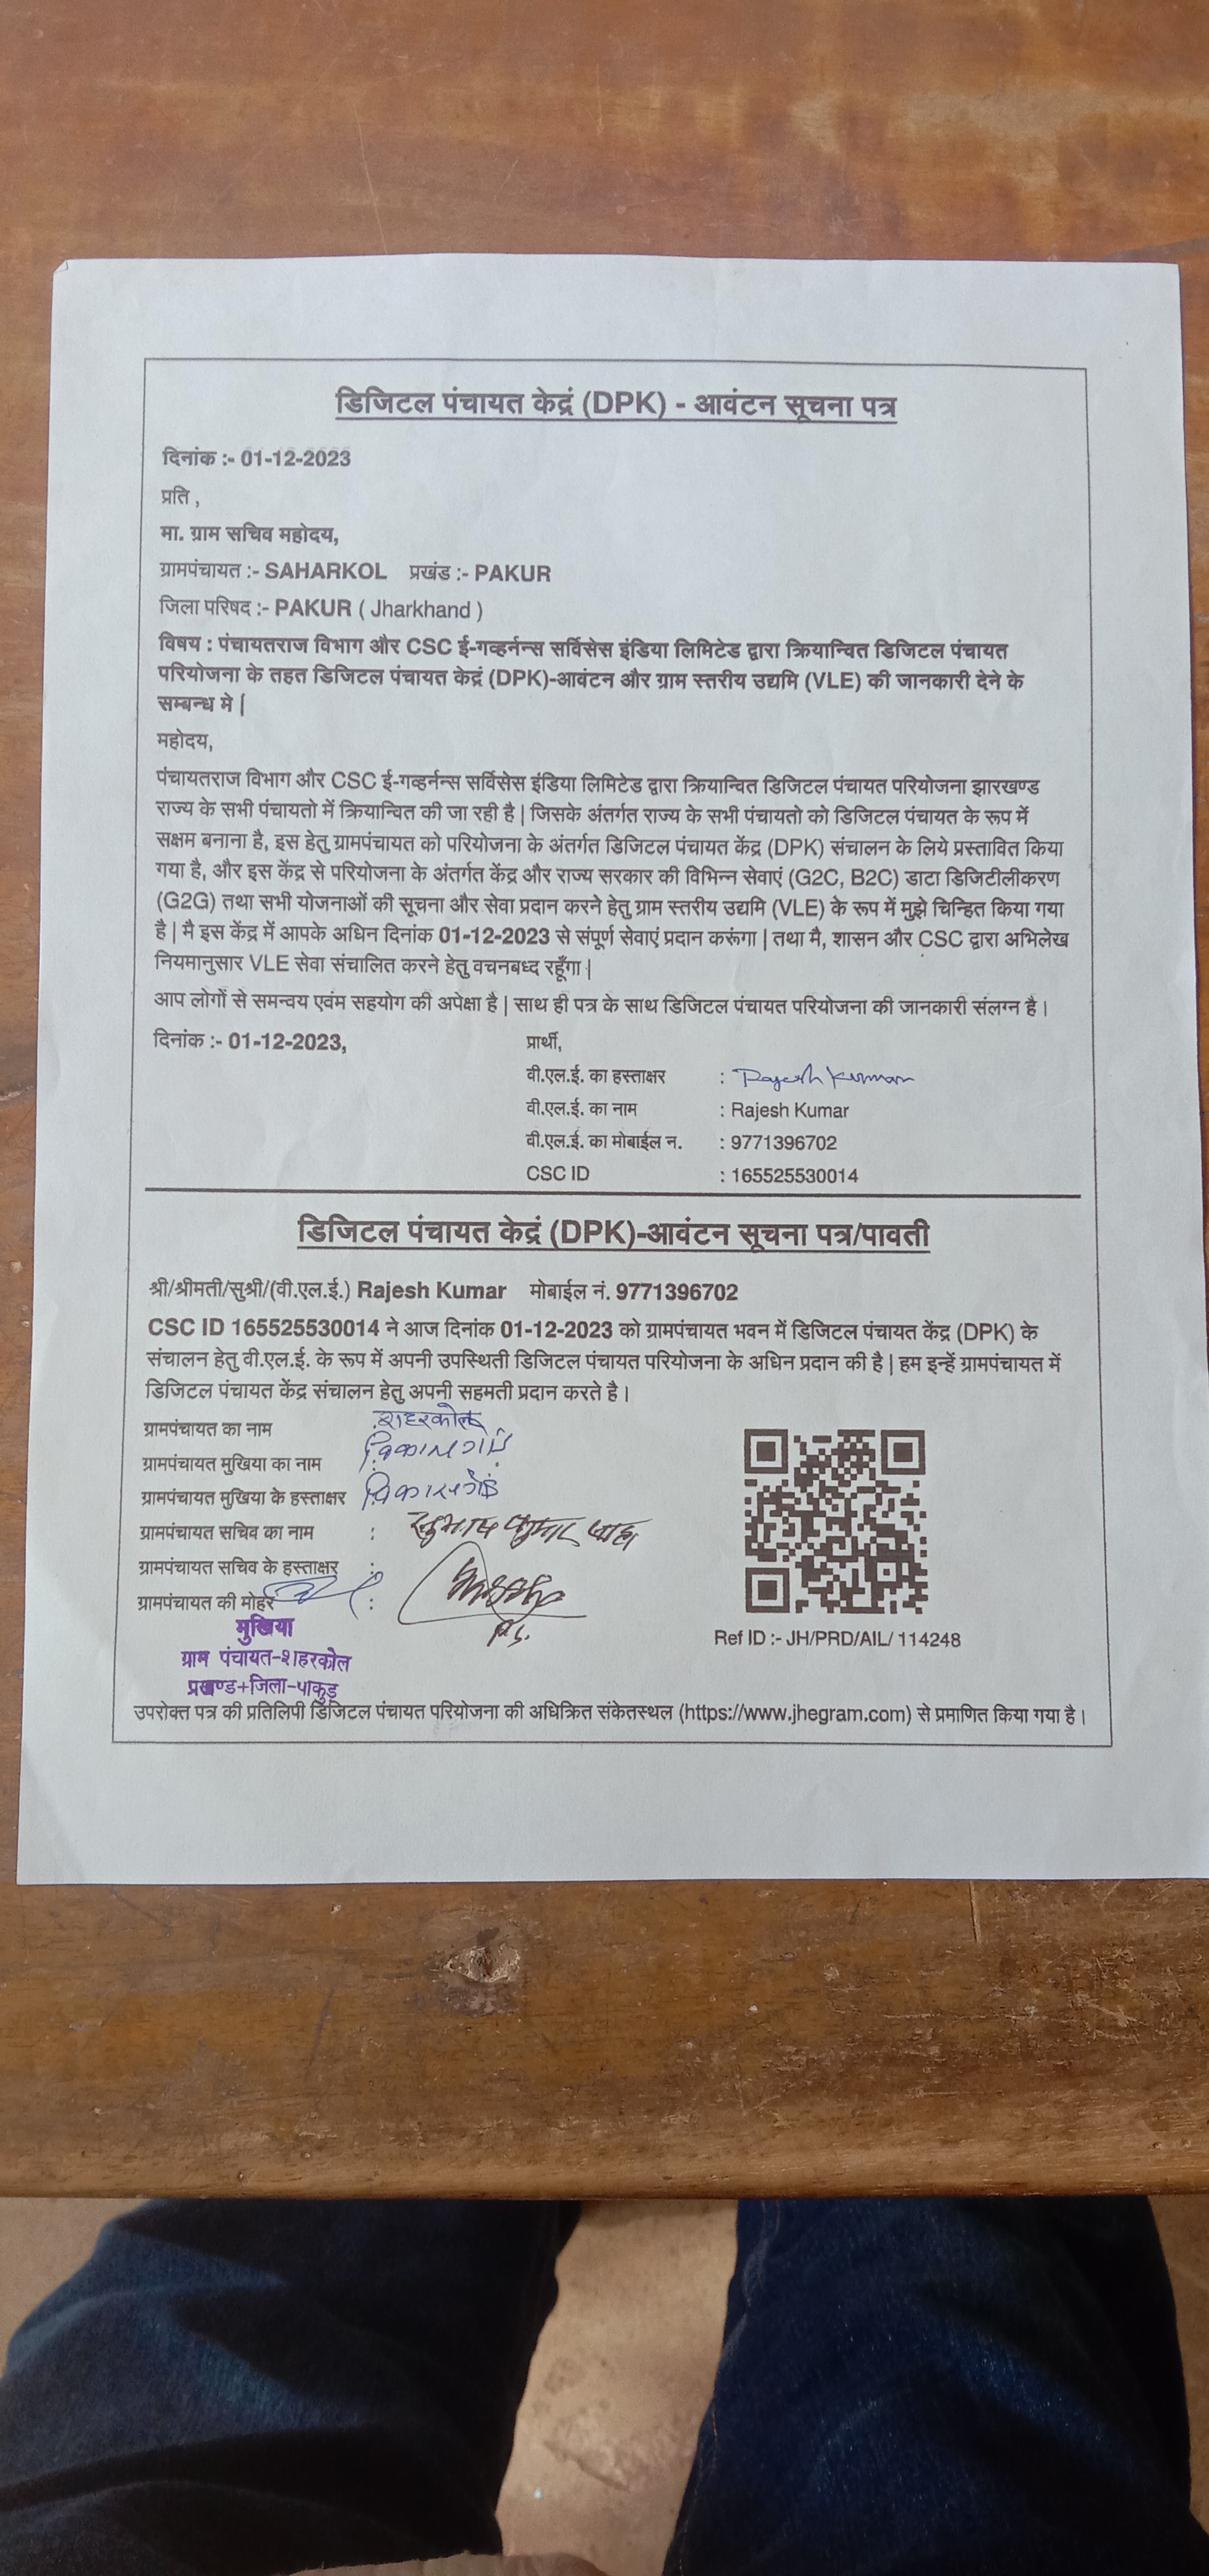 डिजिटल पंचायत केद्रं (DPK) - आवंटन सूचना पत्र
दिनांक :- 01-12-2023
प्रति ,
मा. ग्राम सचिव महोदय,
ग्रामपंचायत :- SAHARKOL प्रखंड :- PAKUR
जिला परिषद :- PAKUR ( Jharkhand )
विषय : पंचायतराज विभाग और CSC ई-गव्हर्नन्स सर्विसेस इंडिया लिमिटेड द्वारा क्रियान्वित डिजिटल पंचायत
परियोजना के तहत डिजिटल पंचायत केद्रं (DPK)-आवंटन और ग्राम स्तरीय उद्यमि (VLE) की जानकारी देने के
सम्बन्ध मे |
महोदय,
पंचायतराज विभाग और CSC ई-गव्हर्नन्स सर्विसेस इंडिया लिमिटेड द्वारा क्रियान्वित डिजिटल पंचायत परियोजना झारखण्ड
राज्य के सभी पंचायतो में क्रियान्वित की जा रही है | जिसके अंतर्गत राज्य के सभी पंचायतो को डिजिटल पंचायत के रूप में
सक्षम बनाना है, इस हेतु ग्रामपंचायत को परियोजना के अंतर्गत डिजिटल पंचायत केंद्र (DPK) संचालन के लिये प्रस्तावित किया
गया है, और इस केंद्र से परियोजना के अंतर्गत केंद्र और राज्य सरकार की विभिन्न सेवाएं (G2C, B2C) डाटा डिजिटीलीकरण
(G2G) तथा सभी योजनाओं की सूचना और सेवा प्रदान करने हेतु ग्राम स्तरीय उद्यमि (VLE) के रूप में मुझे चिन्हित किया गया
है | मै इस केंद्र में आपके अधिन दिनांक 01-12-2023 से संपूर्ण सेवाएं प्रदान करूंगा | तथा मै, शासन और CSC द्वारा अभिलेख
नियमानुसार VLE सेवा संचालित करने हेतु वचनबध्द रहूँगा |
आप लोगों से समन्वय एवंम सहयोग की अपेक्षा है | साथ ही पत्र के साथ डिजिटल पंचायत परियोजना की जानकारी संलग्न है ।
दिनांक :- 01-12-2023, प्रार्थी,
वी.एल.ई. का हस्ताक्षर : Rajesh Kumar
वी.एल.ई. का नाम : Rajesh Kumar
वी.एल.ई. का मोबाईल न. : 9771396702
CSC ID : 165525530014
डिजिटल पंचायत केद्रं (DPK)-आवंटन सूचना पत्र/पावती
श्री/श्रीमती/सुश्री/(वी.एल.ई.) Rajesh Kumar मोबाईल नं. 9771396702
CSC ID 165525530014 ने आज दिनांक 01-12-2023 को ग्रामपंचायत भवन में डिजिटल पंचायत केंद्र (DPK) के
संचालन हेतु वी.एल.ई. के रूप में अपनी उपस्थिती डिजिटल पंचायत परियोजना के अधिन प्रदान की है | हम इन्हें ग्रामपंचायत में
डिजिटल पंचायत केंद्र संचालन हेतु अपनी सहमती प्रदान करते है ।
ग्रामपंचायत का नाम शहरकोल
ग्रामपंचायत मुखिया का नाम : विकास गोंड
ग्रामपंचायत मुखिया के हस्ताक्षर : विकास गोंड
ग्रामपंचायत सचिव का नाम : सुभाष कुमार साहा
ग्रामपंचायत सचिव के हस्ताक्षर :
ग्रामपंचायत की मोहर :
मुखिया
ग्राम पंचायत-शहरकोल
प्रखण्ड+जिला-पाकुड़
Ref ID :- JH/PRD/AIL/ 114248
उपरोक्त पत्र की प्रतिलिपी डिजिटल पंचायत परियोजना की अधिक्रित संकेतस्थल (https://www.jhegram.com) से प्रमाणित किया गया है ।